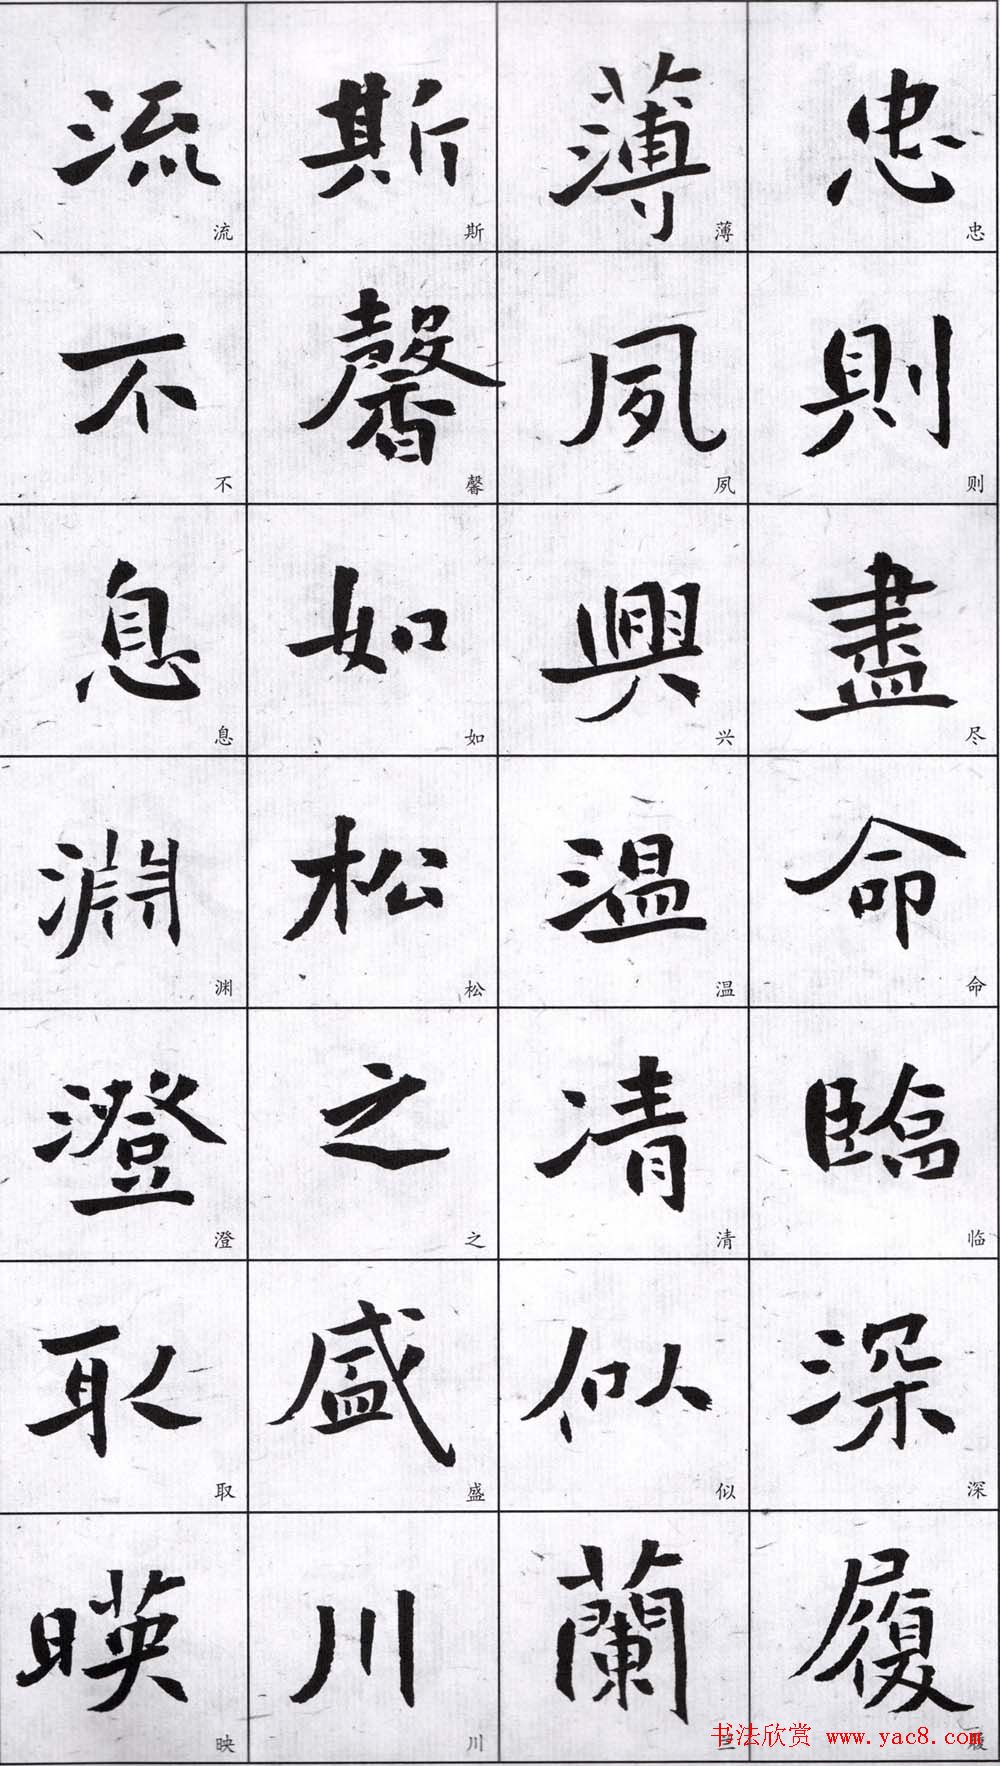 忠則盡命臨深履
忠则尽命临深履
薄夙興温凊似蘭
薄夙兴温清似兰
斯馨如松之盛川
斯馨如松之盛川
流不息淵澄取暎
流不息渊澄取映
书法欣赏 www.yac8.com